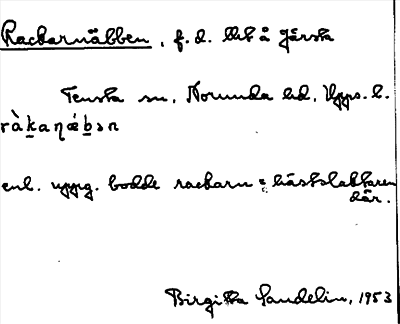 Rackarnäbben, f.d. lht å Järsta
Tensta sn, Norunda hd, Upps. l.
ràkaŋǽbən
enl. uppg. bodde rackarn = hästslaktaren
där.
Birgitta Sandelin, 1953